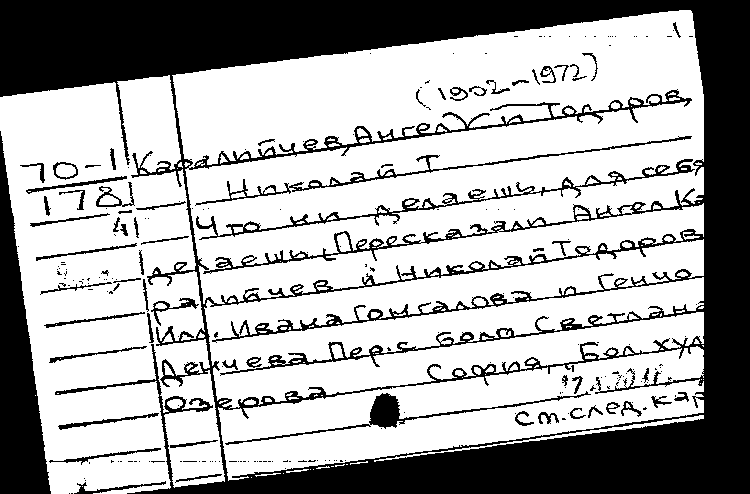 1
(1902-1972)
70-1 Каралийчев, Ангел) и Тодоров,
178 Николай Т
4 Что ни делаешь, для себя
делаешь. Пересказали Ангел Ка
ралийчев и Николай Тодоров
Илл. Ивана Гонгалова и Генчо
Денчева. Пер. с болг Светлана
Озерова София, "Бол. худ
Ст. след. кар